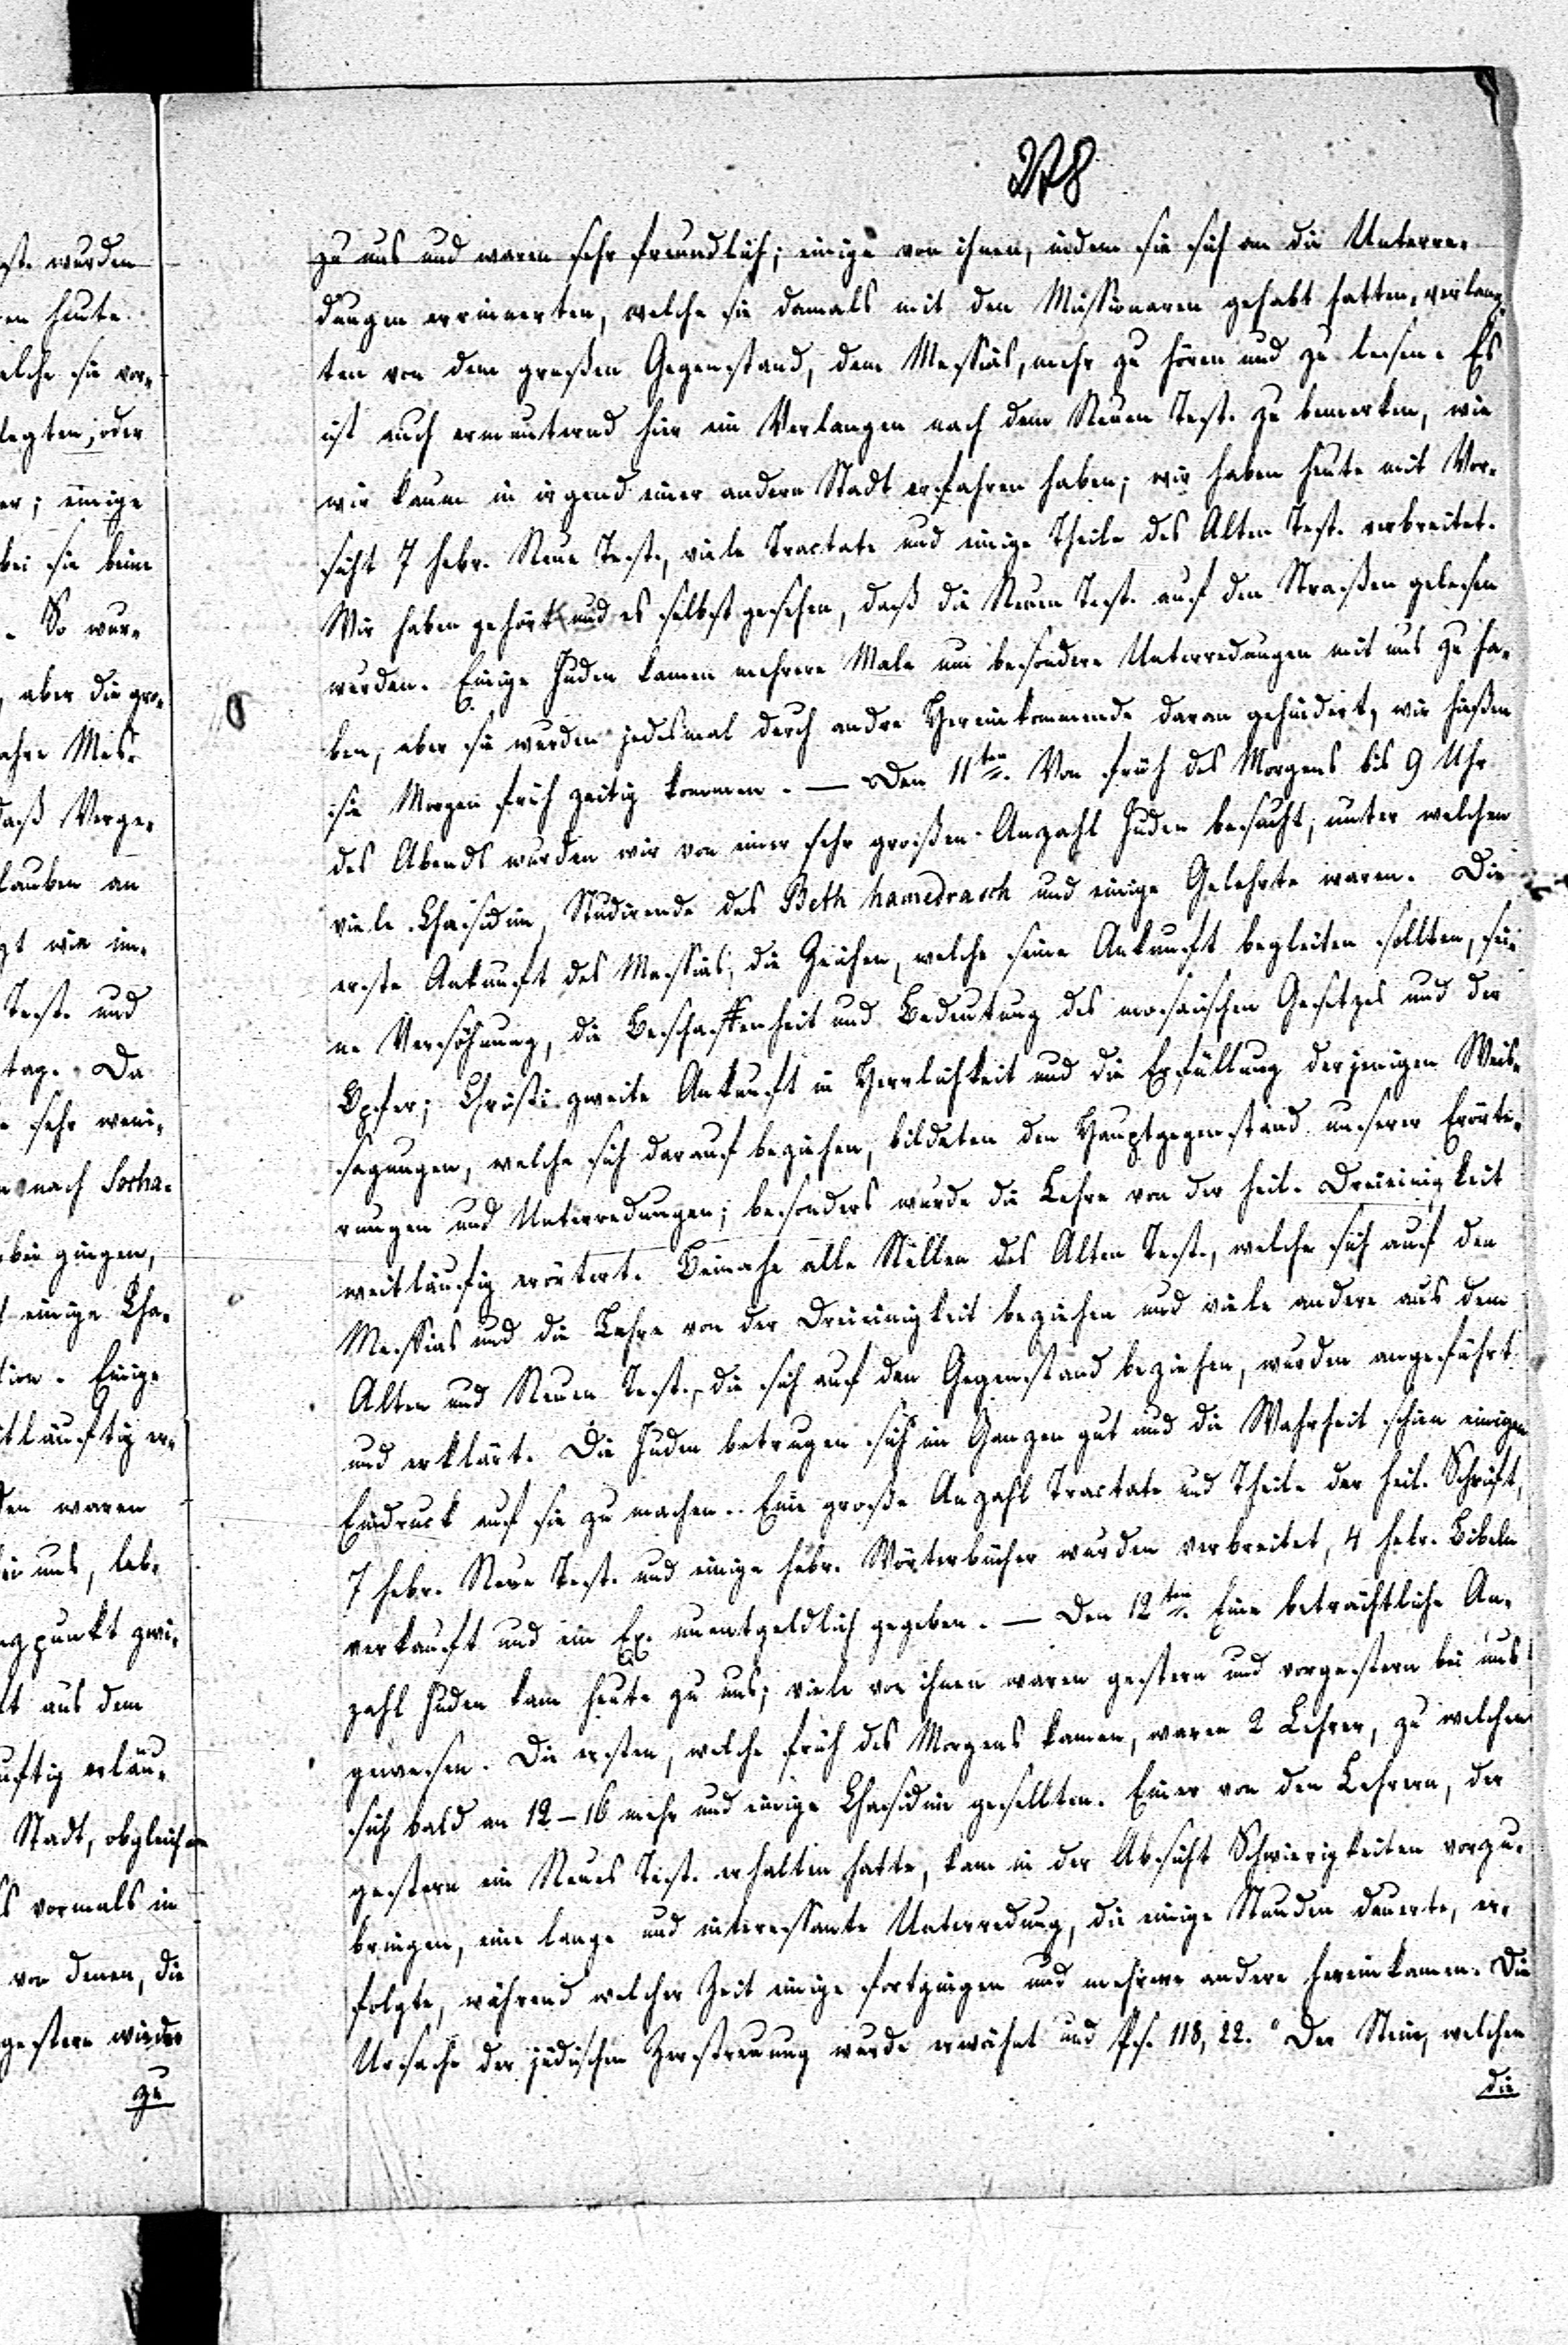 278
zu uns und waren sehr freundlich; einige von ihnen, indem sie sich an die Unterre-
dungen erinnerten, welche sie damals mit den Missionaren gehabt hatten, verlang-
ten von dem großen Gegenstand, dem Messias, mehr zu hören und zu lesen. Es
ist auch ermunternd hier ein Verlangen nach dem Neuen Test. zu bemerken, wie
wir kaum in irgend einer andern Stadt erfahren haben; wir haben heute mit Vor-
sicht 7 hebr. Neue Test., viele Tractate und einige Theile des Alten Test. verbreitet.
Wir haben gehört und es selbst gesehen, daß die Neuen Test. auf den Straßen gelesen
werden. Einige Juden kamen mehrere Male um besondere Unterredungen mit uns zu ha-
ben, aber sie wurden jedesmal durch andre Hereinkommende daran gehindert, wir hießen
sie Morgen früh zeitig kommen. — Den 11ten. Von früh des Morgens bis 9 Uhr
des Abends wurden wir von einer sehr großen Anzahl Juden besucht, unter welchen
viele Chasidim, Studirende des Beth hamedrasch und einige Gelehrte waren. Die
erste Ankunft des Messias, die Zeichen, welche seine Ankunft begleiten sollten, sei-
ne Versöhnung, die Beschaffenheit und Bedeutung des mosaischen Gesetzes und der
Opfer; Christi zweite Ankunft in Herrlichkeit und die Erfüllung derjenigen Weis-
sagungen, welche sich darauf beziehen, bildeten den Hauptgegenstand unserer Erörte-
rungen und Unterredungen; besonders wurde die Lehre von der heil. Dreieinigkeit
weitläufig erörtert. Beinahe alle Stellen des Alten Test., welche sich auf den
Messias und die Lehre von der Dreieinigkeit beziehen und viele andere aus dem
Alten und Neuen Test., die sich auf den Gegenstand beziehen, wurden angeführt
und erklärt. Die Juden betrugen sich im Ganzen gut und die Wahrheit schien einigen
Eindruck auf sie zu machen. Eine große Anzahl Tractate und Theile der heil. Schrift,
7 hebr. Neue Test. und einige hebr. Wörterbücher wurden verbreitet, 4 hebr. Bibeln
verkauft und ein Ex. unentgeldlich gegeben. — Den 12ten. Eine beträchtliche An-
zahl Juden kam heute zu uns; viele von ihnen waren gestern und vorgestern bei uns
gewesen. Die ersten, welche früh des Morgens kamen, waren 2 Lehrer, zu welchen
sich bald an 12–16 mehr und einige Chasidim gesellten. Einer von den Lehrern, der
gestern ein Neues Test. erhalten hatte, kam in der Absicht Schwierigkeiten vorzu-
bringen, eine lange und interessante Unterredung, die einige Stunden dauerte, er-
folgte, während welcher Zeit einige fortgingen und mehrere andere hereinkamen. Die
Ursache der jüdischen Zerstreuung wurde erwähnt und Ps. 118, 22. Der Stein, welchen
die
st. wurden
en heute
elche sie vor-
legten, oder
er; einige
bei sie beim
. So wur-
, aber die gro-
ahre Mes-
daß Verge-
lauben an
gt wie im-
Test. und
tag. Da
e sehr weni-
nach Socha-
bei gingen,
einige Cha-
tion. Einige
itläuftig er-
den waren
ei uns, leb-
gpunkt zwi-
lt aus dem
uftig erläu-
Stadt, obgleich
ls vormals in
von denen, die
gestern wieder
zu